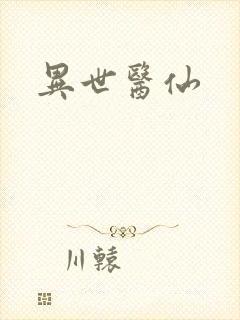 異世醫仙
川轅